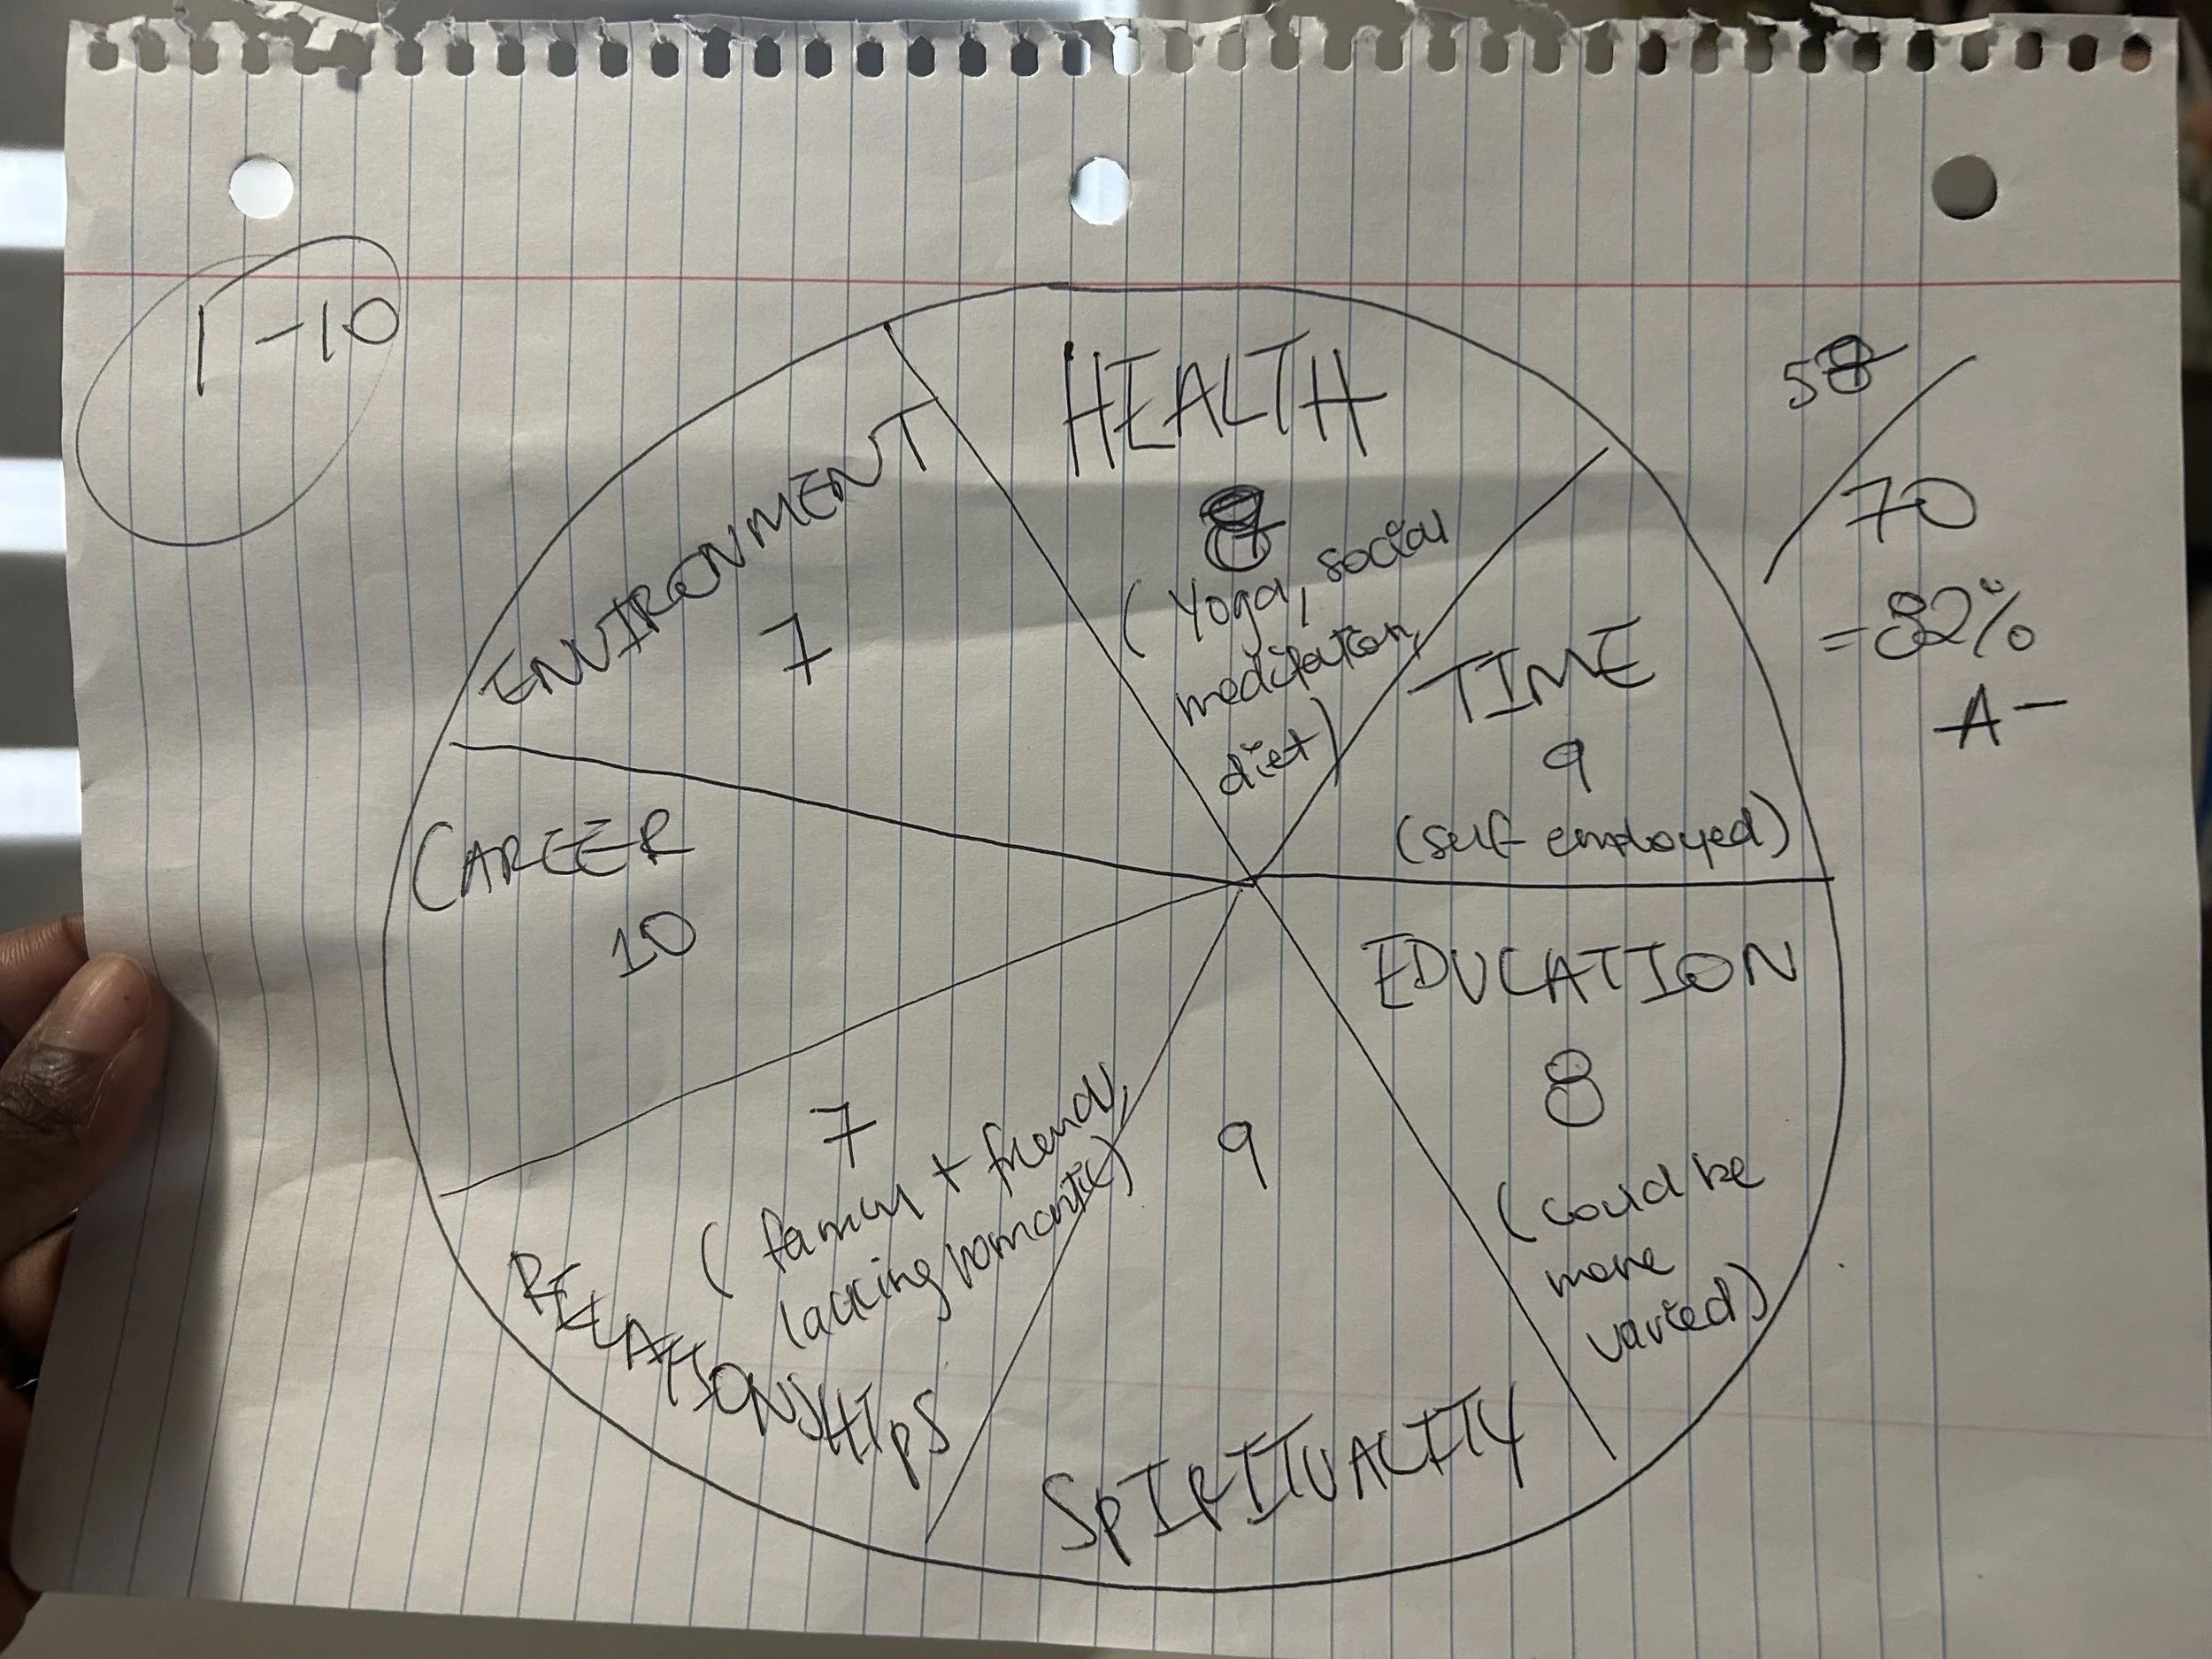 1-10
HEALTH
8
(Yoga, social
meditation,
diet)
TIME
9
(self employed)
EDUCATION
8
(could be
more
varied)
SPIRITUALITY
9
RELATIONSHIPS
7
(family + friends,
lacking romantic)
CAREER
10
ENVIRONMENT
7
58
70
=82%
A-